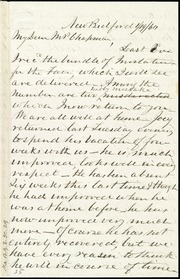 New Bedford 1/9/64
My Dear Mrs Chapman,
Last Eve
rec'd the bundle of
for the Fair, which I will see
are delivered — Among the
number are two
which I now return to you
We are all well at home — Joey
returned last Tuesday Evening
to spend his vacation of four
weeks with us — he is much
improved looks well in every
respect — He has been absent
six weeks this last time & though
he had improved when he
was at home before he has
now improved very much
more — Of course he has not
entirely recovered, but we
have every reason to think
he will in course of time